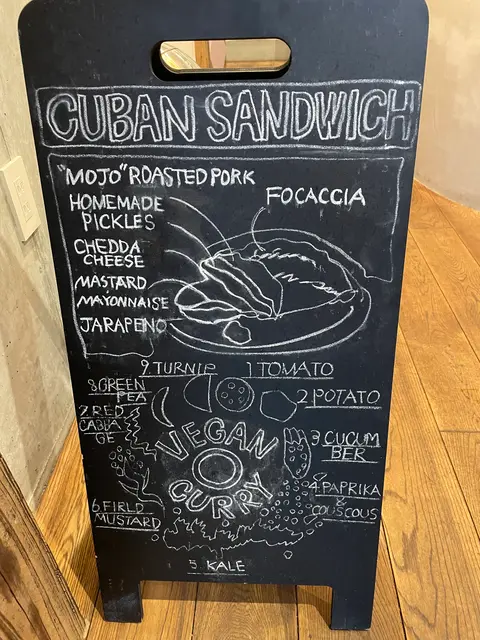 CUBAN SANDWICH
"MOJO" ROASTED PORK
FOCACCIA
HOMEMADE
PICKLES
CHEDDA
CHEESE
MASTARD
MAYONNAISE
JARAPENO
9 TURNIP
1 TOMATO
8 GREEN
PEA
2 POTATO
2 RED
CABBA
GE
VEGAN
CURRY
3 CUCUM
BER
4. PAPRIKA
&
COUSCOUS
6 FIRLD
MUSTARD
5. KALE